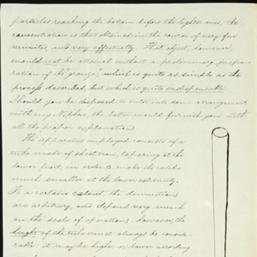 particles reaching the bottom before the lighter ones, the
concentration is thus obtained in the course of very few
minutes, and very effectually. That object, however,
could not be attained without a preliminary prepa-
ration of the "granza", which is quite as simple as the
process described, but which is quite indispensable.
Should you be disposed to enter into some arrangement
with my Nephew, the latter would furnish you with
all the proper explanations.
The apparatus employed consists of a
tube made of sheet iron, tapering at the
lower part, in order to make the outlet
much smaller at the lower extremity.
To a certain extent, the dimensions
are arbitrary, and depend very much
on the scale of operations; however, the
height of the tube must always be conside-
rable: it may be higher or lower according